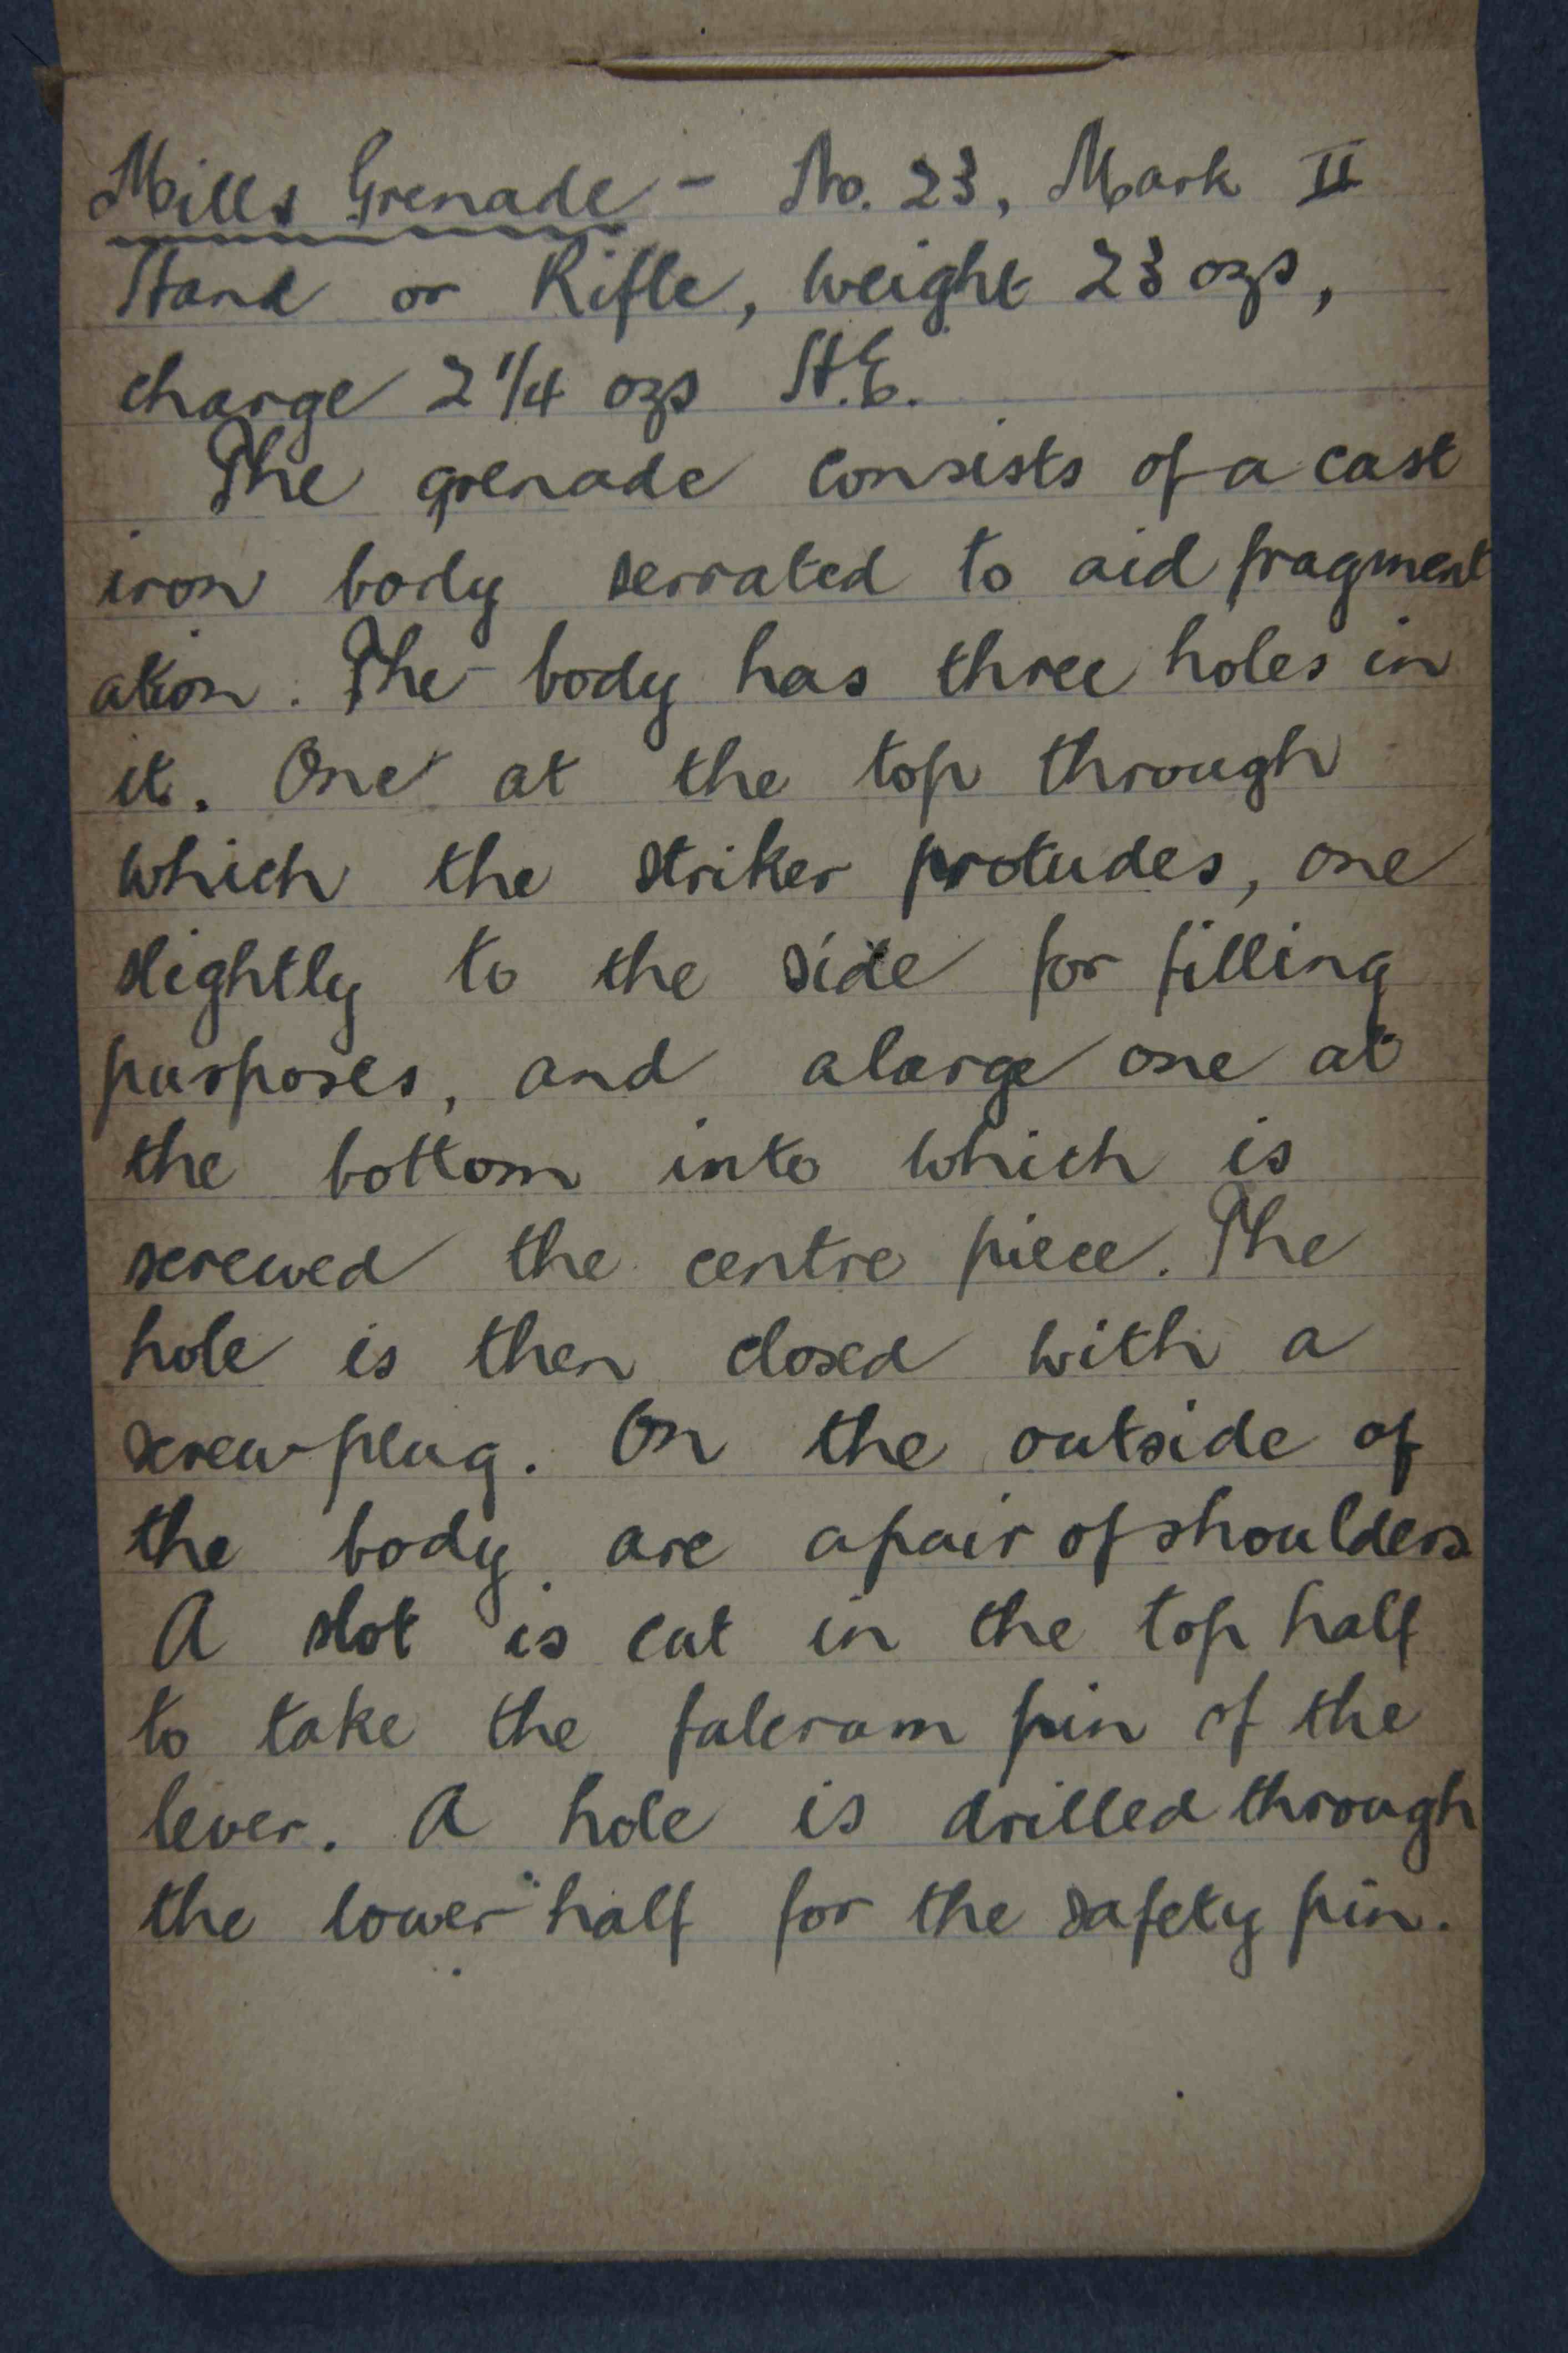 Mills Grenade - No. 23, Mark II
Hand or Rifle, weight 23 ozs,
charge 2 1/4 ozs H.E.
The grenade consists of a cast
iron body serrated to aid fragment
ation. The body has three holes in
it. One at the top through
which the striker protudes, one
slightly to the side for filling
purposes, and a large one at
the bottom into which is
screwed the centre piece. The
hole is then closed with a
screw-plug. On the outside of
the body are a pair of shoulders
A slot is cut in the top half
to take the fulcrum pin of the
lever. A hole is drilled through
the lower half for the safety pin.